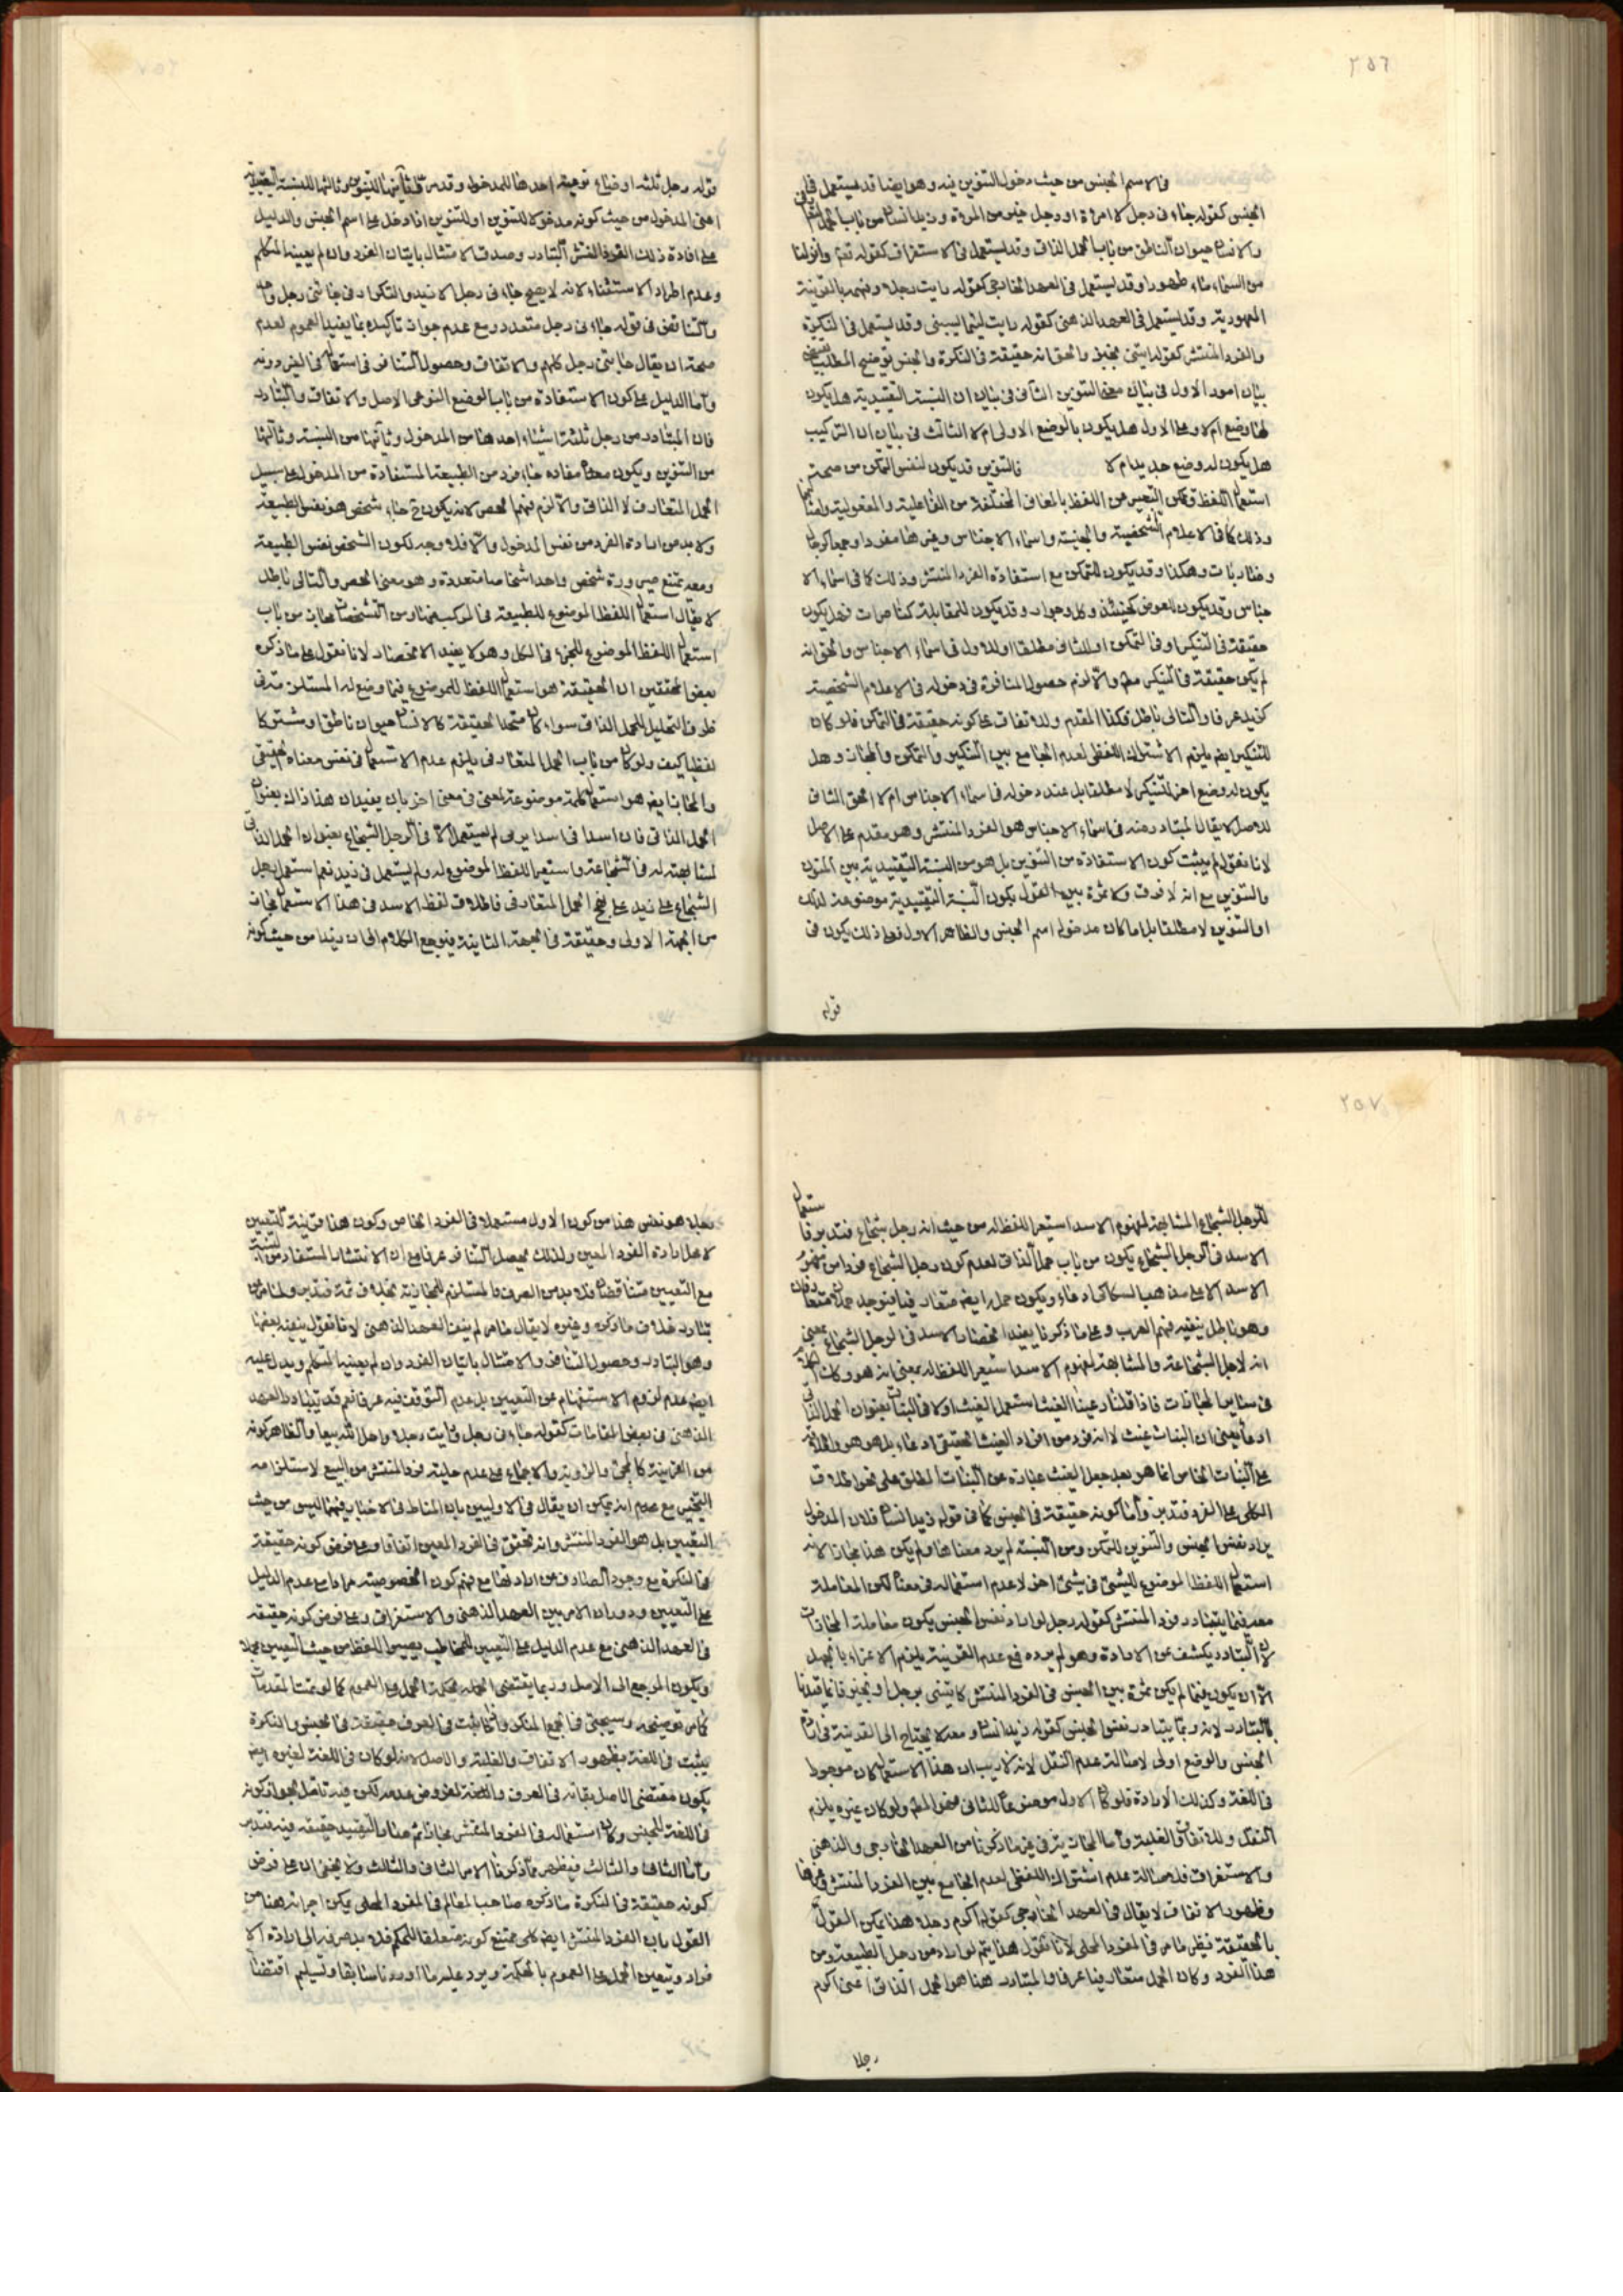 ٢٥٦
فالاسم الجنس من حيث دخول التنوين فيه وهو ايضا قد يستعمل في
الجنس كقوله جاءنى رجل لا امرءة او رجل خير من امرءة وزيد انسان من باب الحمل
والانسان حيوان ناطق من باب الحمل الذاتى وقد يستعمل فى الاستغراق كقوله تعم وانزلنا
من السماء ماء طهورا وقد يستعمل فى العهد الخارجى كقوله رايت رجلا وفهم بالقرينة
المعهودية وقد يستعمل فى العهد الذهنى كقوله رايت لئيما يسبنى وقد يستعمل فى النكرة
والفرد المنتشر كقوله ايتنى بخبز والحق انه حقيقة فى النكرة والجنس توضيح المطلب
بيان امور الاول فى بيان معنى التنوين الثانى فى بيان ان النسبة التقييدية هل يكون
لها وضع ام لا وعلى الاول هل يكون بالوضع الاولى ام لا الثالث فى بيان ان التركيب
هل يكون له وضع جديد ام لا فالتنوين قد يكون لنفس التمكن من صحة
استعمال اللفظ وتمكن التعبير من اللفظ بالمعانى المختلفة من الفاعلية والمفعولية
وذلك كما فى الاعلام الشخصية والجنسية واسماء الاجناس وغيرها مفردا وجمعا كرجال
وضاربات وهكذا وقد يكون للتمكن مع استفادة الفرد المنتشر وذلك كما فى اسماء الا
جناس وقد يكون للعوض كحينئذ وكل وجوار وقد يكون للمقابلة كمسلمات فهل يكون
حقيقة فى التنكير او فى التمكن او للثانى مطلقا او للاول فى اسماء الاجناس والحق انه
لم يكن حقيقة فى التنكير مطم والا لزم حصول المنافرة فى دخوله فى الاعلام الشخصية
كزيد عرفا والتالى باطل فكذا المقدم وللاتفاق على كونه حقيقة فى التمكن فلو كان
للتنكير ايض يلزم الاشتراك اللفظى لعدم الجامع بين التنكير والتمكن والمجاز وهل
يكون له وضع اخر للتنكير لا مطلقا بل عند دخوله فى اسماء الاجناس ام لا الحق الثانى
للاصل لا يقال المتبادر منه فى اسماء الاجناس هو الفرد المنتشر وهو مقدم على الاصل
لانا نقول لم يثبت كون الاستفادة من التنوين بل هو من النسبة التقييدية بين المنون
والتنوين مع انه لا فرق ولا ثمرة بين القول بكون النسبة التقييدية موضوعة لذلك
او التنوين لا مطلقا بل اما كان مدخوله اسم الجنس والظاهر الاول فعلى ذلك يكون فى
قوله
قوله رجل ثلثة اوضاع نوعية احدها للمدخول وثانيها للتنوين وثالثها للنسبة التقييدية
اعنى المدخول من حيث كونه مدخولا للتنوين او للتنوين اذا دخل على اسم الجنس والدليل
على افادة ذلك الفرد المنتشر التبادر وصدق الامتثال باتيان الفرد وان لم يعينه المتكلم
وعدم اطراد الاستثناء لانه لا يصح جاءنى رجل الا زيد والتكرار فى جائنى رجل
والتناقض فى قوله جاءنى رجل متعدد ومع عدم جواز تاكيده بما يفيد العموم لعدم
صحة ان يقال جائنى رجل كلهم والاتفاق وحصول التنافر فى استعماله فى الغير دونه
واما الدليل على كون الاستفادة من باب الوضع النوعى الاصل والاتفاق والتبادر
فان المتبادر من رجل ثلثة اشياء احدها من المدخول وثانيها من النسبة وثالثها
من التنوين ويكون معناه مفاده جاء فرد من الطبيعة المستفادة من المدخول على سبيل
الحمل المتعارف لا الذاتى والا لزم فهم الحصر لانه يكون ح جاء شخص هو نفس الطبيعة
ولا بد من ارادة الفرد من نفس المدخول والا فلا وجه لكون الشخص نفس الطبيعة
ومعه يمتنع صيرورة شخص واحد اشخاصا متعددة وهو معنى الحصر والتالى باطل
لا يقال استعمال اللفظ الموضوع للطبيعة فى المركب منها ومن التشخصات مجاز من باب
استعمال اللفظ الموضوع للجزء فى الكل وهو لا يفيد الانحصار لانا نقول على ما ذكره
بعض المحققين ان الحقيقة هو استعمال اللفظ الموضوع فيما وضع له المستلزم فى
ظرف التحليل للحمل الذاتى سواء كان متحد الحقيقة كالانسان حيوان ناطق او مشتركا
لفظيا كيف ولو كان من باب الحمل المتعارف يلزم عدم الاستعمال فى نفس معناه الحقيقى
والمجاز ايض هو استعمال كلمة موضوعة لمعنى فى معنى اخر بان يفيد ان هذا ذاك بعنوان
الحمل الذاتى فان اسدا فى اسد يرمى لم يستعمل الا فى الرجل الشجاع بعنوان الحمل الذاتى
لمشابهته له فى الشجاعة واستعير اللفظ الموضوع له ولم يستعمل فى زيد نعم استعمل الرجل
الشجاع على زيد على نهج الحمل المتعارف فاطلاق لفظ الاسد فى هذا الاستعمال مجاز
من الجهة الاولى وحقيقة فى الجهة الثانية فيرجع الكلام الى ان زيدا من حيث كونه
٢٥٧
للرجل الشجاع المشابهة لمفهوم الاسد استعير اللفظ له من حيث انه رجل شجاع فتدبر وفا
الاسد فى الرجل الشجاع يكون من باب حمل الذاتى لعدم كون رجل الشجاع فردا من مفهوم
الاسد الا على مذهب السكاكى ادعاء ويكون حمله ايض متعارفيا فيوجد حملان متعارفان
وهو باطل ينفيه فهم العرب وعلى ما ذكرنا يفيد انحصار الاسد فى الرجل الشجاع بمعنى
انه لاجل الشجاعة والمشابهة لمفهوم الاسد استعير اللفظ له بمعنى انه هو وكذا
فى سائر المجازات فاذا قلنا رعينا الغيث استعمل الغيث اولا فى النبات بعنوان الحمل الذاتى
ادعاء يعنى ان النبات غيث لا انه فرد من افراد الغيث الحقيقى ادعاء بل هو هو والاطلاق
على النبات الخاص انما هو بعد جعل الغيث عبارة عن النبات المطلق على نحو اطلاق
الكلى على الفرد فتدبر واما كونه حقيقة فى الجنس كما فى قوله زيد انسان فلان المدخول
يراد نفس الجنس والتنوين للتمكن ومن النسبة لم يرد معناها ولم يكن هذا مجازا لانه
استعمال اللفظ الموضوع للشئ فى شئ اخر لا عدم استعماله فى معناه لكن المعاملة
معه فيما يتبادر فرد المنتشر كقوله رجل لو اراد نفس الجنس يكون معاملة المجازات
لان التبادر يكشف عن الارادة وهو لم يرده فمع عدم القرينة يلزم الاغراء بالجهل
الا ان يكون فيما لم يكن ثمرة بين الجنس فى الفرد المنتشر كايتنى برجل او بخبز وانما قيدنا
بالتبادر لانه ربما يتبادر نفس الجنس كقوله زيد انسان ومعه لا يحتاج الى القرينة فى ارادة
الجنس والوضع اولى لاصالة عدم النقل لانه لا ريب ان هذا الاستعمال كان موجودا
فى اللغة وكذلك الارادة فلو كان الاول موضوعا للثانى فهو المطم ولو كان غيره يلزم
النقل وللاتفاق الغلبة واما المجازية فى غير ما ذكرنا من العهد الخارجى والذهنى
والاستغراق فلاصالة عدم اشتراك اللفظى لعدم الجامع بين الفرد المنتشر وغيرها
وظهور الاتفاق لا يقال فى العهد الخارجى كقوله اكرم رجلا هذا يمكن القول
بالحقيقة نظير ما مر فى المفرد المحلى لانا نقول هذا يتم لو اراد من رجل الطبيعة ومن
هذا الفرد وكان الحمل متعارفيا عرفا والمتبادر هنا هو الحمل الذاتى اعنى اكرم
رجلا
رجلا هو نفس هذا من كون الاول مستعملا فى الفرد الخاص وكون هذا قرينة للتعيين
لاجل ارادة الفرد المعين ولذلك يحصل التنافر عرفا مع ان الانتشار المستفاد من النسبة
مع التعيين متناقضان فلا بد من الصرف والمستلزم للمجازية بخلاف ثمة فتدبر ولما مر من
تبادر خلاف ما ذكره وغيره لا يقال ما مر لم ينف العهد الذهنى لانا نقول ينفيه بعضها
وهو التبادر وحصول التناقض والامتثال باتيان الفرد وان لم يعينه المتكلم ويدل عليه
ايض عدم لزوم الاستفهام عن التعيين بل عدم التوقف فيه عرفا نعم قد يتبادر العهد
الذهنى فى بعض المقامات كقوله جاءنى رجل ورايت رجلا واحل الله بيعا والظاهر كونه
من القرينة كالمجئ والرؤية والاجماع على عدم حلية فرد المنتشر من البيع لاستلزامه
التخيير مع عدم انه يمكن ان يقال فى الاوليين بان المناط فى الاخبار فيهما ليس من حيث
التعيين بل هو الفرد المنتشر وانه تحقق فى الفرد المعين اتفاقا وعلى فرض كونه حقيقة
فى النكرة مع وجود الصارف عن ارادتها مع فهم كون الخصوصية مرادا مع عدم الدليل
على التعيين ودوران الامر بين العهد الذهنى والاستغراق وعلى فرض كونه حقيقة
فى العهد الذهنى مع عدم الدليل على التعيين للمخاطب يصير اللفظ من حيث التعيين مجملا
ويكون المرجع الى الاصل وربما يقتضى الحكمة الحمل على العموم كما لو تمت المقدمات
كما مر توضيحه وسيجئ فى الجمع المنكر واذا ثبت فى العرف حقيقة فى الجنس والنكرة
يثبت فى اللغة بظهور الاتفاق والغلبة والاصل لانه لو كان فى اللغة لغيره ايض
يكون مقتضى الاصل بقائه فى العرف والمفروض عدمه لكن فيه تامل لجواز كونه
فى اللغة للجنس وكان استعماله فى الفرد المنتشر مجازا ثم صار التقييد حقيقة فيه فتدبر
واما الثانى والثالث فيظهر مما ذكرنا الامر الثانى والثالث ولا يخفى ان على فرض
كونه حقيقة فى النكرة ما ذكره صاحب المعالم فى المفرد المحلى يمكن اجرائه هنا من
القول بان الفرد المنتشر ايض كلى ممتنع كونه متعلقا للحكم فلا بد صرفه الى ارادة الا
فراد ويتعين الحمل على العموم بالحكمة ويرد عليه ما اوردنا سابقا وتسليم اقتضاء